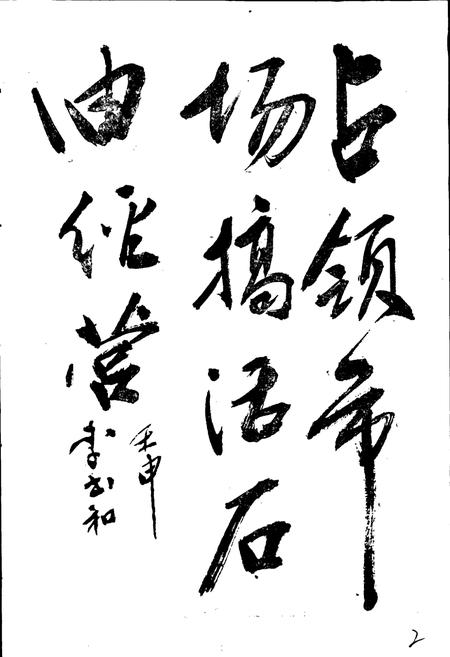 占领市
场搞活石
油经营
壬申
李书和
2